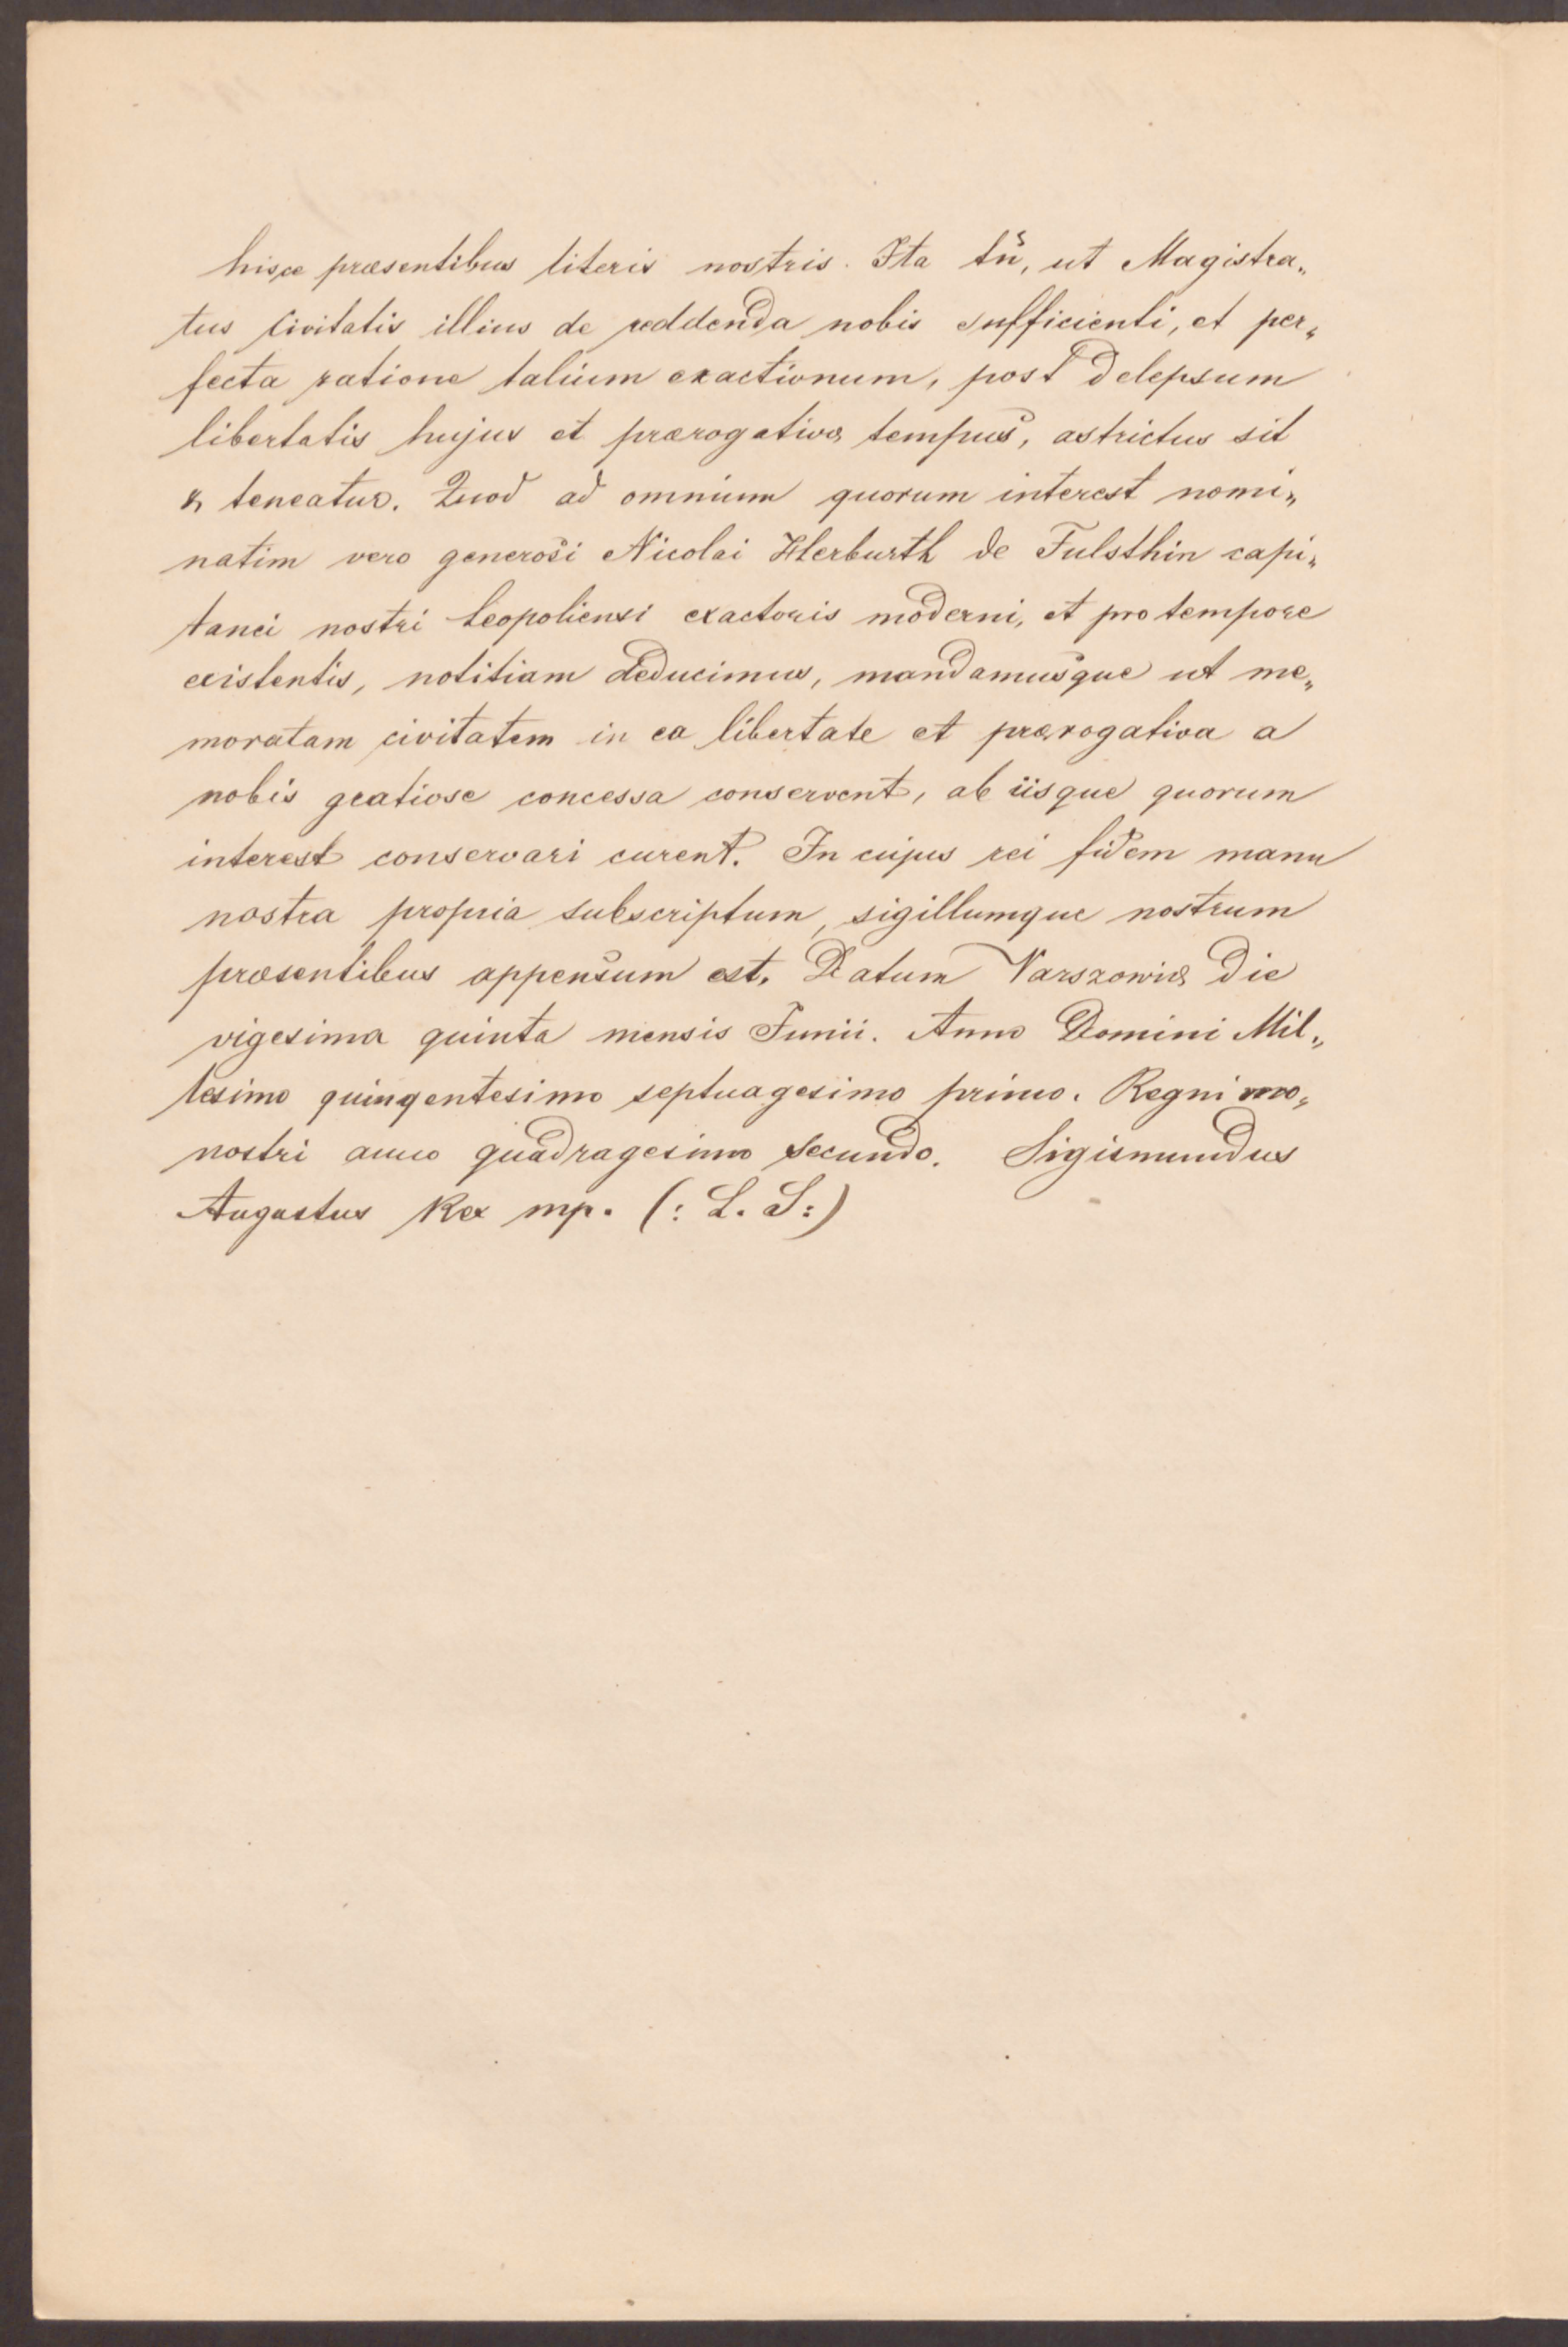 hisce præsentibus literis nostris. Ita tn̄, ut Magistra„
tus Civitatis illius de reddenda nobis sufficienti, et per„
fecta ratione talium exactionum, post delepsum
libertatis hujus et prærogativæ tempus, astrictus sit
& teneatur. Quod ad omnium quorum interest nomi„
natim vero generosi Nicolai Herburth de Fulsthin capi„
tanei nostri Leopoliensi exactoris moderni, et pro tempore
existentis, notitiam deducimus, mandamusque ut me„
moratam civitatem in ea libertate et prærogativa a
nobis gratiose concessa conservent, ab iisque quorum
interest conservari curent. In cujus rei fidem manu
nostra propria subscriptum, sigillumque nostrum
præsentibus appensum est. Datum Varszowiæ die
vigesima quinta mensis Junii. Anno Domini Mil„
lesimo quingentesimo septuagesimo primo. Regni no„
nostri anno quadragesimo secundo. Sigismundus
Augustus Rex mp. (: L. S:)